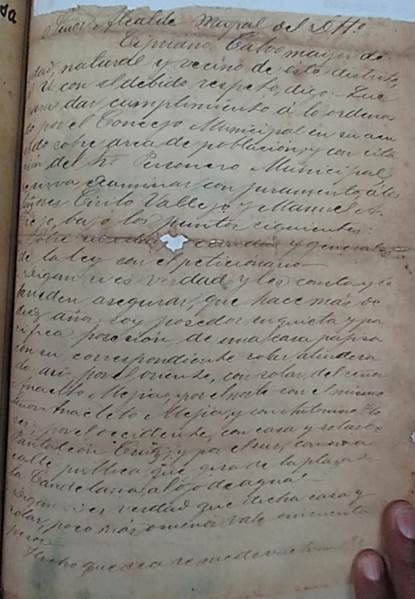 Señor Alcalde Mpal del Dtto
Cipriano Calvo mayor de
dad, natural y vecino de este distrito
U. con el debido respeto, digo: Que
para dar cumplimiento á lo ordena
do por el Concejo Municipal en su acu
do sobre area de poblacion, y con cita
ción del Sr. Personero Municipal,
sirva examinar con juramento á los
ñores Cirilo Vallejo y Manuel A.
bajo los puntos siguientes:
Sobre generales
de la ley con el peticionario
Digan si es verdad y les consta y lo
pueden asegurar, que hace más de
diez años, soy poseedor en quieta y pa
cífica posesion, de una casa pajisa
con su correspondiente solar, alindera
do así, por el oriente, con solar del señor
Mejia, por el norte con el mismo
señor Mejia y con Antonino
por el occidente, con casa y solar de
Pantaleón Cruz; y por el sur, con una
calle pública que gira de la plaza de
la Candelaria, al ojo de agua
Digan si es verdad que dicha casa y
solar, poco más o menos vale cincuenta
pesos
Hecho que sea se me devuelva